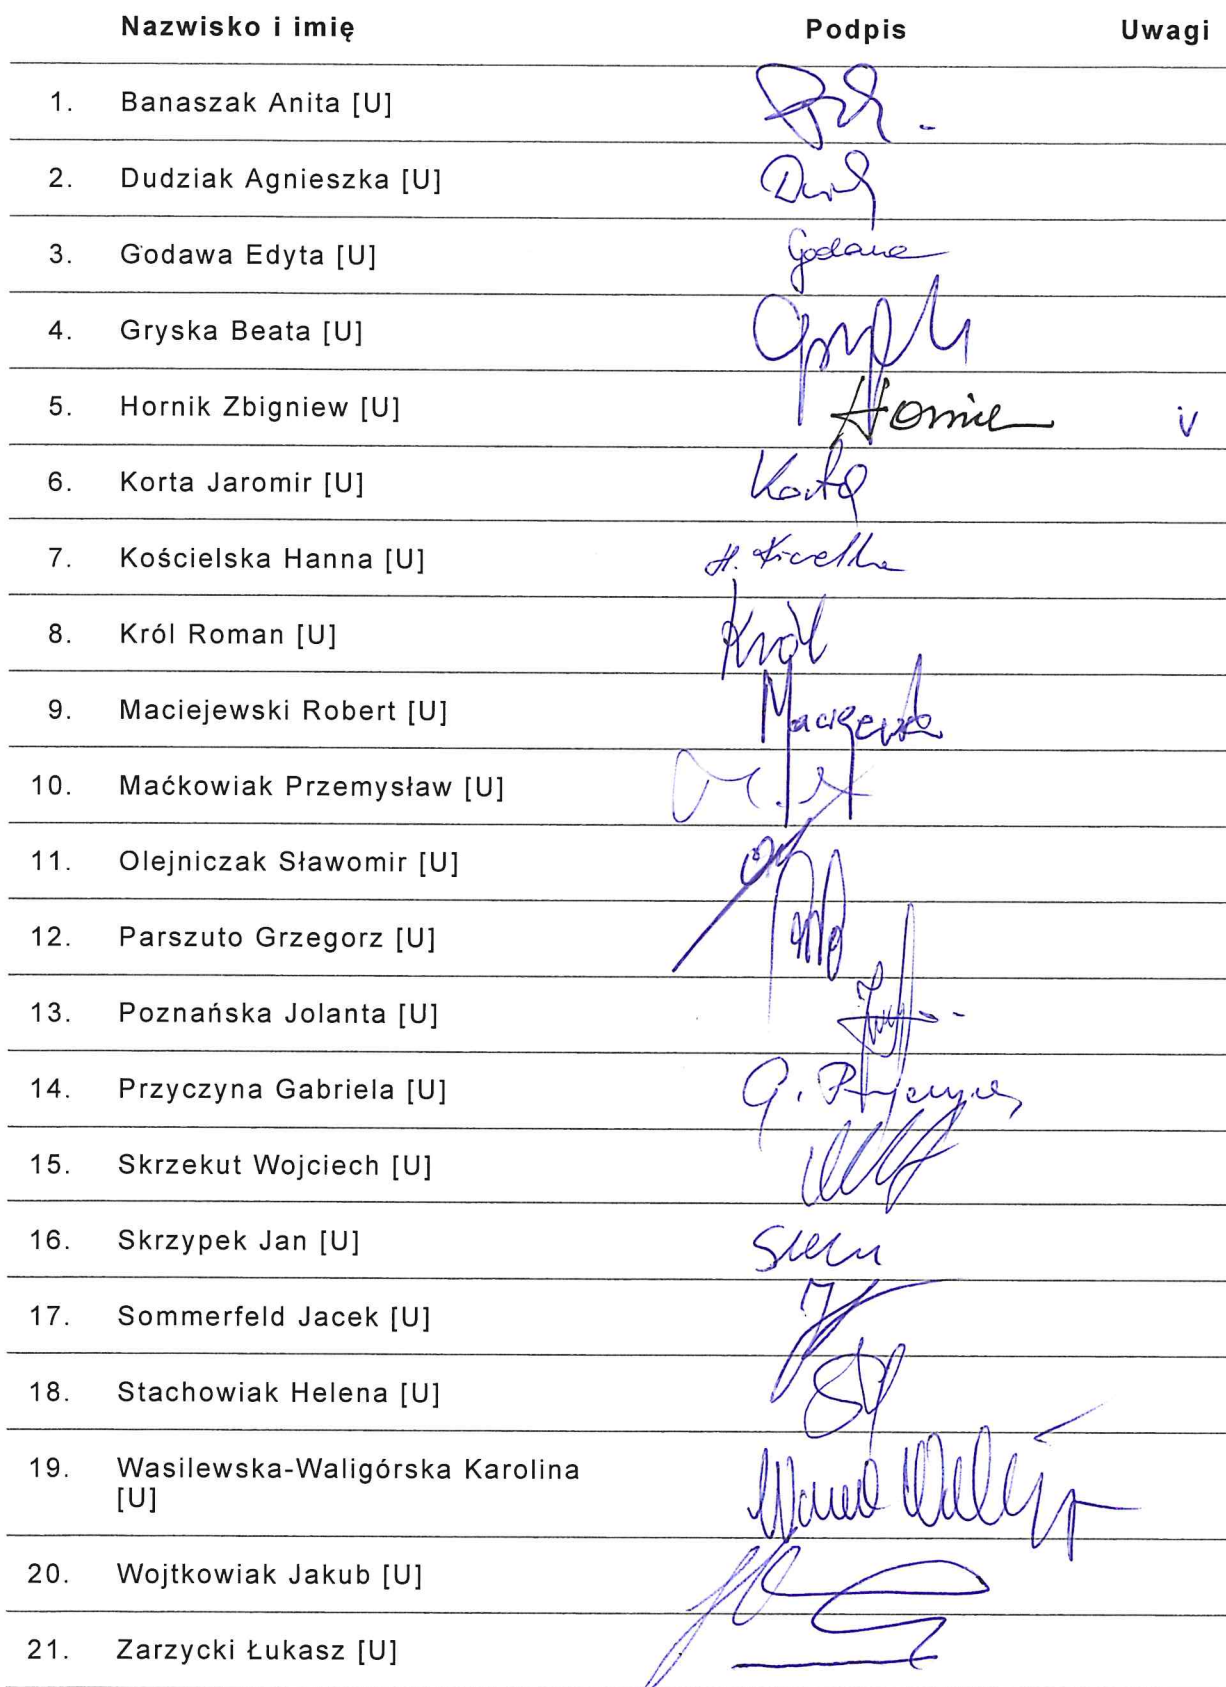 Nazwisko i imię Podpis Uwagi
1. Banaszak Anita [U]
2. Dudziak Agnieszka [U]
3. Godawa Edyta [U] Godawa
4. Gryska Beata [U]
5. Hornik Zbigniew [U] Hornik v
6. Korta Jaromir [U] Korta
7. Kościelska Hanna [U] H.
8. Król Roman [U] Król
9. Maciejewski Robert [U] Maciejewski
10. Maćkowiak Przemysław [U]
11. Olejniczak Sławomir [U]
12. Parszuto Grzegorz [U]
13. Poznańska Jolanta [U]
14. Przyczyna Gabriela [U] G. Przyczyna
15. Skrzekut Wojciech [U]
16. Skrzypek Jan [U]
17. Sommerfeld Jacek [U]
18. Stachowiak Helena [U]
19. Wasilewska-Waligórska Karolina
[U]
20. Wojtkowiak Jakub [U]
21. Zarzycki Łukasz [U]